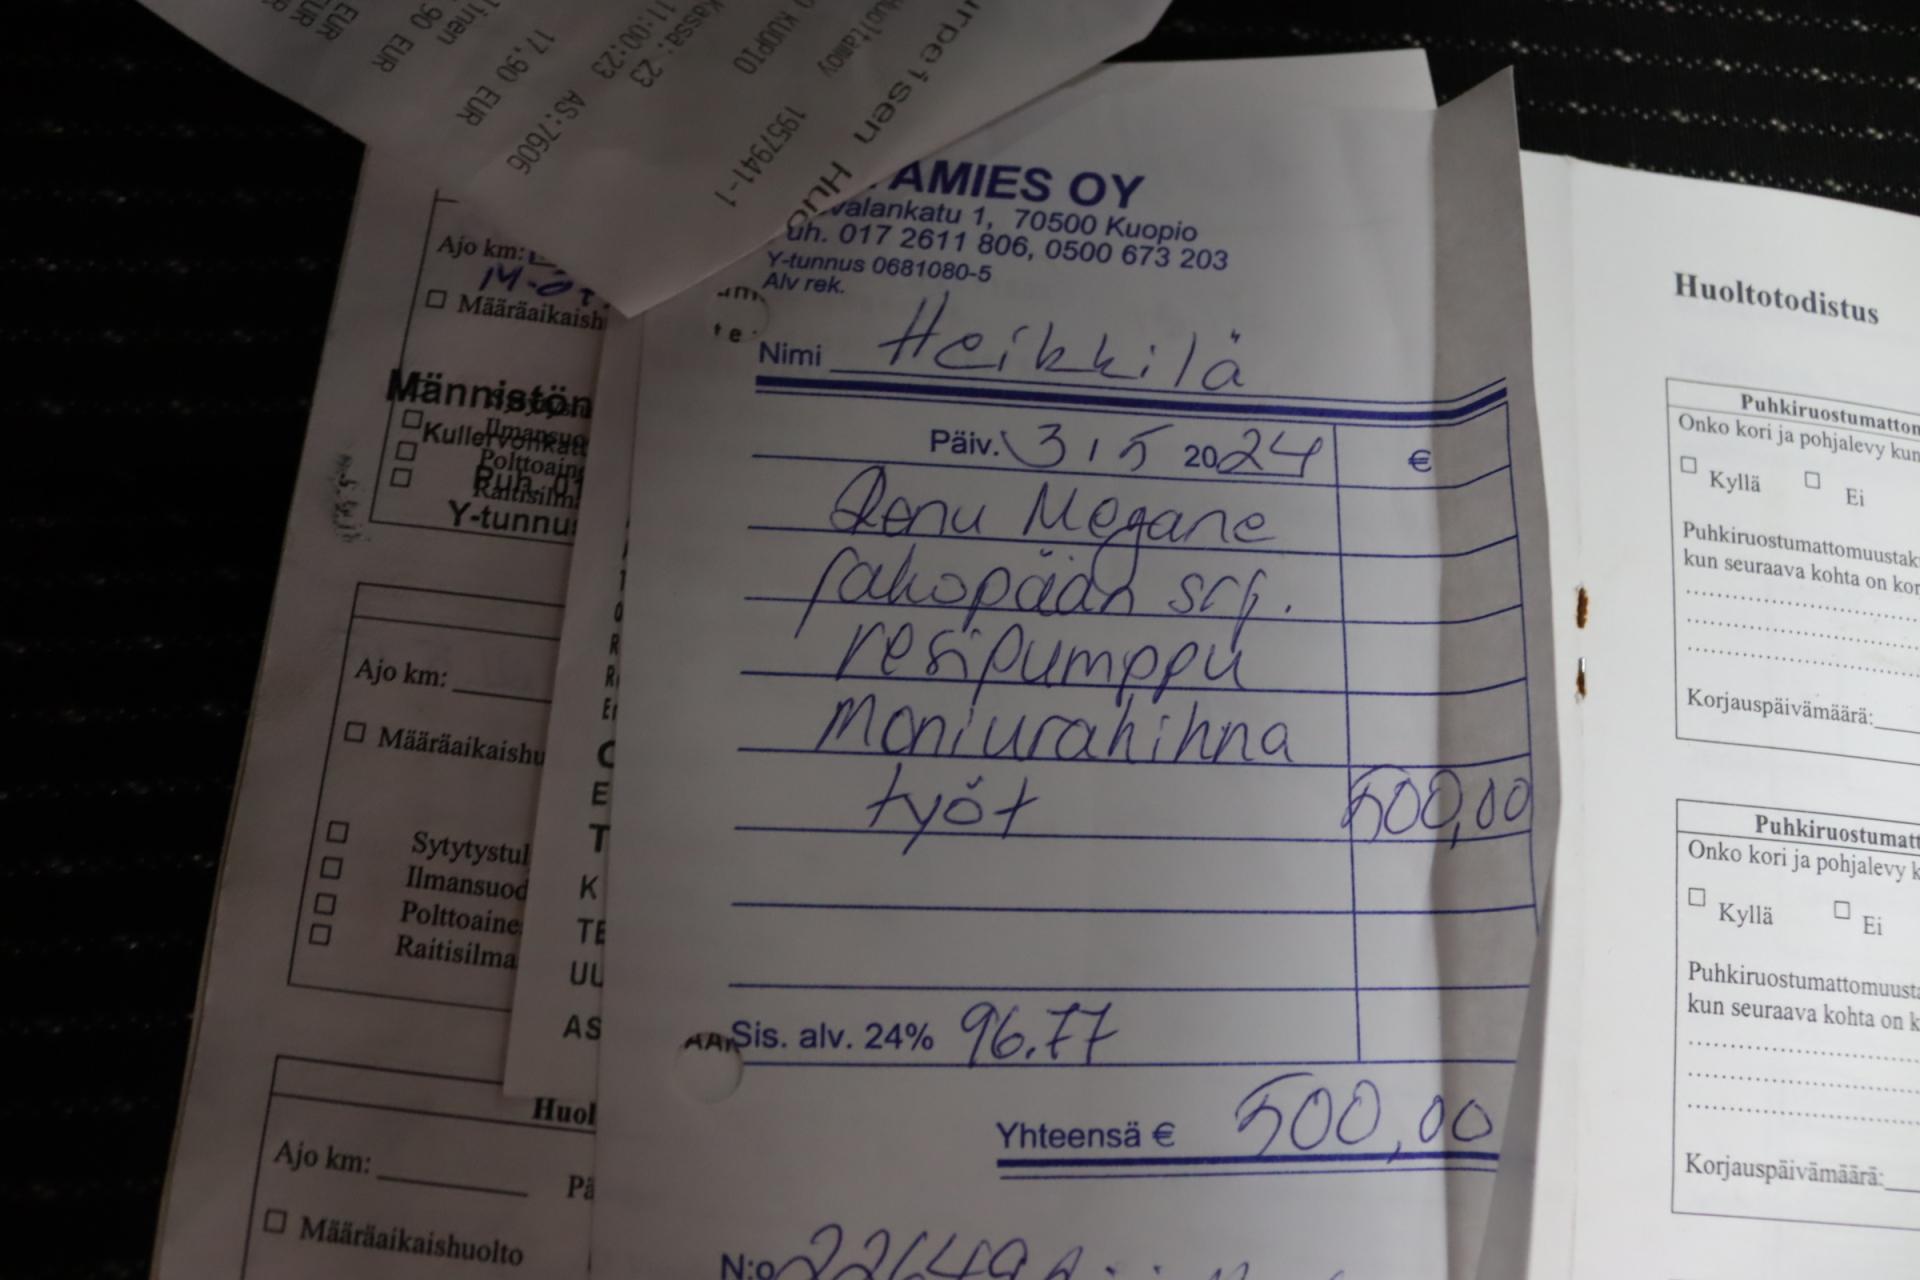 linen
17,90 EUR
90 EUR
EUR
AS:7606
11:00:23
Kassa: 23
KUOPIO
1957941-1
AMIES OY
valankatu 1, 70500 Kuopio
uh. 017 2611 806, 0500 673 203
Y-tunnus 0681080-5
Alv rek.
Nimi Heikkilä
Päiv. 3 / 5 2024 €
Renu Megane
jakopään srj.
vesipumppu
moniurahihna
työt 500,00
Sis. alv. 24% 96.77
Yhteensä € 500,00
N:o
Ajo km:
Määräaikaish
Männistön
Kullervonkat
Puh.
Y-tunnus
Ilmansuo
Polttoaine
Raitisilm
Ajo km:
Määräaikaishu
Sytytystul
Ilmansuod
Polttoaine
Raitisilma
Huol
Ajo km: Pä
Määräaikaishuolto
C
E
T
K
TE
UU
AS
Huoltotodistus
Puhkiruostumatton
Onko kori ja pohjalevy kun
Kyllä Ei
Puhkiruostumattomuustak
kun seuraava kohta on kor
Korjauspäivämäärä:
Puhkiruostumatt
Onko kori ja pohjalevy k
Kyllä Ei
Puhkiruostumattomuusta
kun seuraava kohta on k
Korjauspäivämäärä: